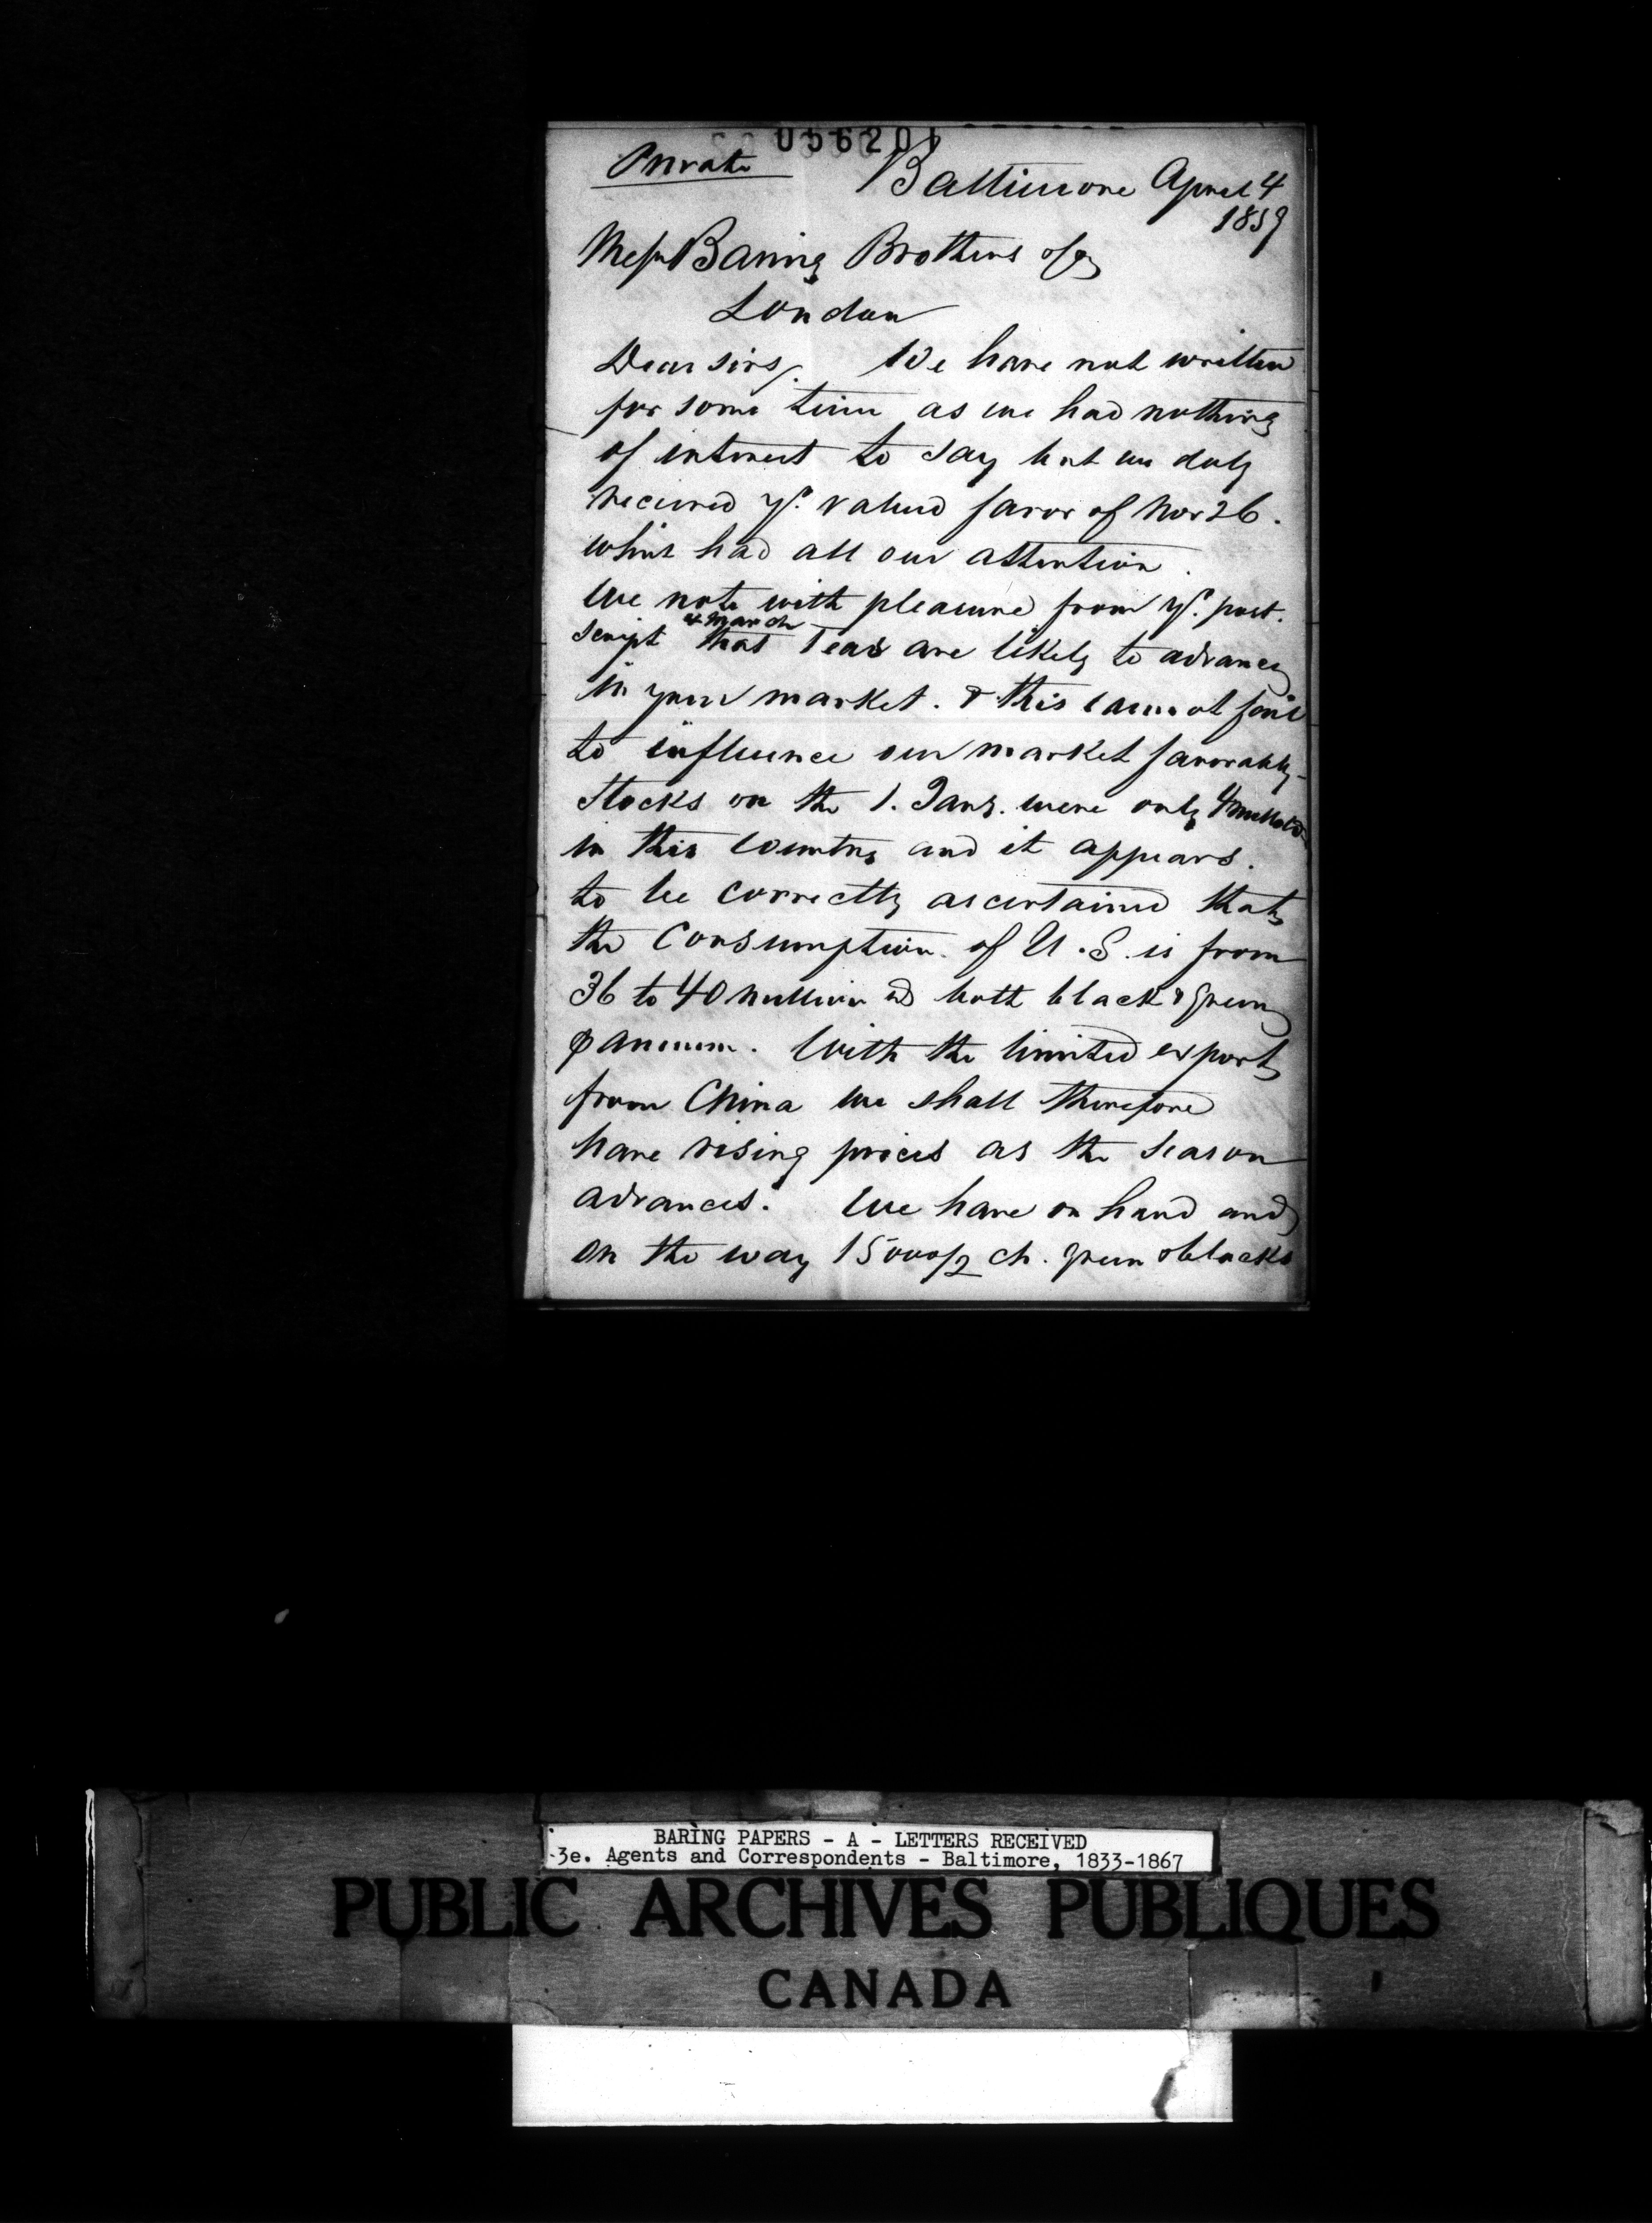 056201
Private
Baltimore April 4
1859
Messrs Baring Brothers & Co
London
Dear sirs, We have not written
for some time as we had nothing
of interest to say but we duly
received yr. valued favor of Nov 26.
which had all our attention.
We note with pleasure from yr. post.
4 March
script that Teas are likely to advance
in your market. & this cannot fail
to influence our market favorably-
Stocks on the 1. Jany. were only 4 million
in this country and it appears.
to be correctly ascertained that
the Consumption of U.S. is from
36 to 40 million lbs both black & green
p annum. With the limited export
from China we shall therefore
have rising prices as the season
advances. We have on hand and
on the way 15000/2 ch. green & blacks
BARING PAPERS - A - LETTERS RECEIVED
3e. Agents and Correspondents - Baltimore, 1833-1867
PUBLIC ARCHIVES PUBLIQUES
CANADA